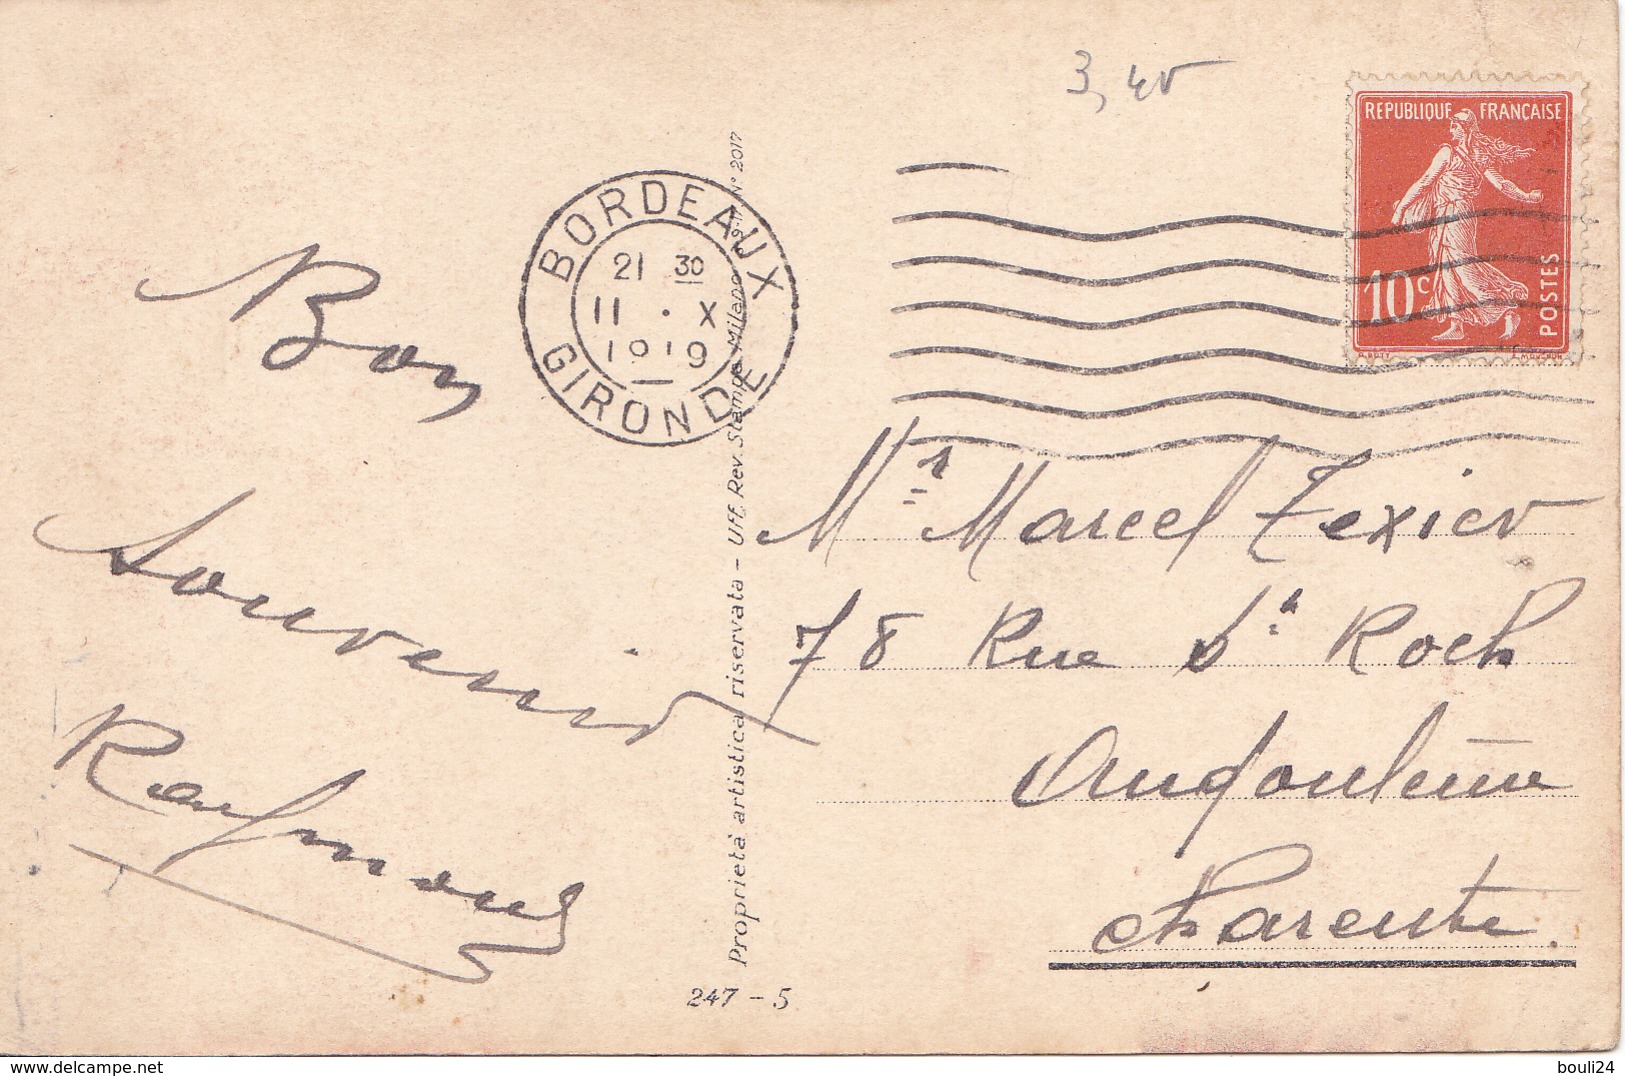 3,45
REPUBLIQUE FRANÇAISE
10c
POSTES
BORDEAUX
21 30
11 . X
1919
GIRONDE
Bon
Souvenir
Raymond
Mr Marcel Texier
78 Rue St Roch
Angoulême
Charente.
Proprietà artistica riservata - Uff. Rev. Stampa Milano N° 2017
247 - 5
delcampe.net
bouli24